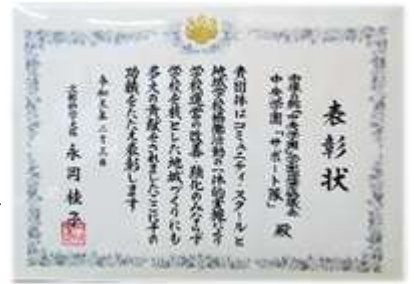 表彰状
中央学園「サポート隊」 殿
貴団体はコミュニティ・スクールと
地域学校協働活動の一体的実施により
学校運営の改善 強化のみならず
学校を核とした地域づくりにも
多大の貢献をされましたことにその
功績をたたえ表彰します
文部科学大臣 永岡桂子